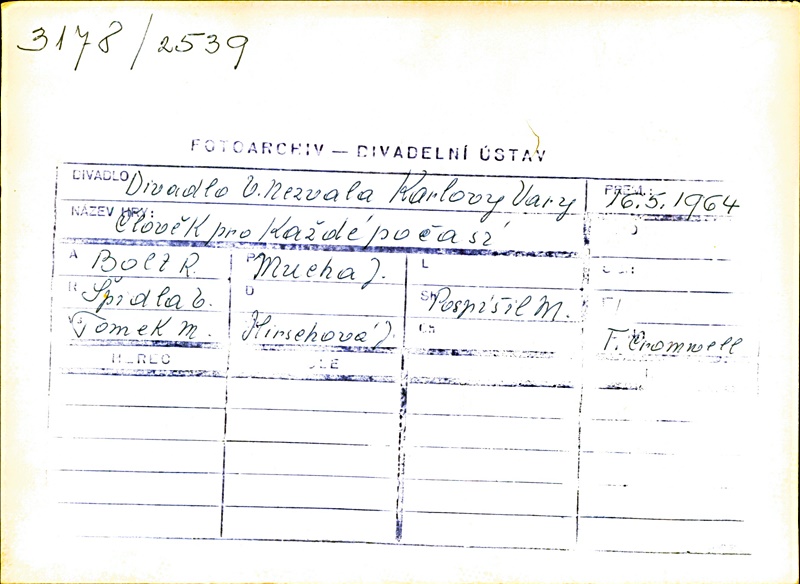 3178/2539
FOTOARCHIV — DIVADELNÍ ÚSTAV
DIVADLO Divadlo V. Nezvala Karlovy Vary PREM.: 16.5.1964
NÁZEV HRY: Člověk pro každé počasí
A Bolt R. P Mucha J. L
R Špidla V. D SH Pospíšil M.
Vs Tomek M. Hirschová J. Ch T. Cromwell
HEREC